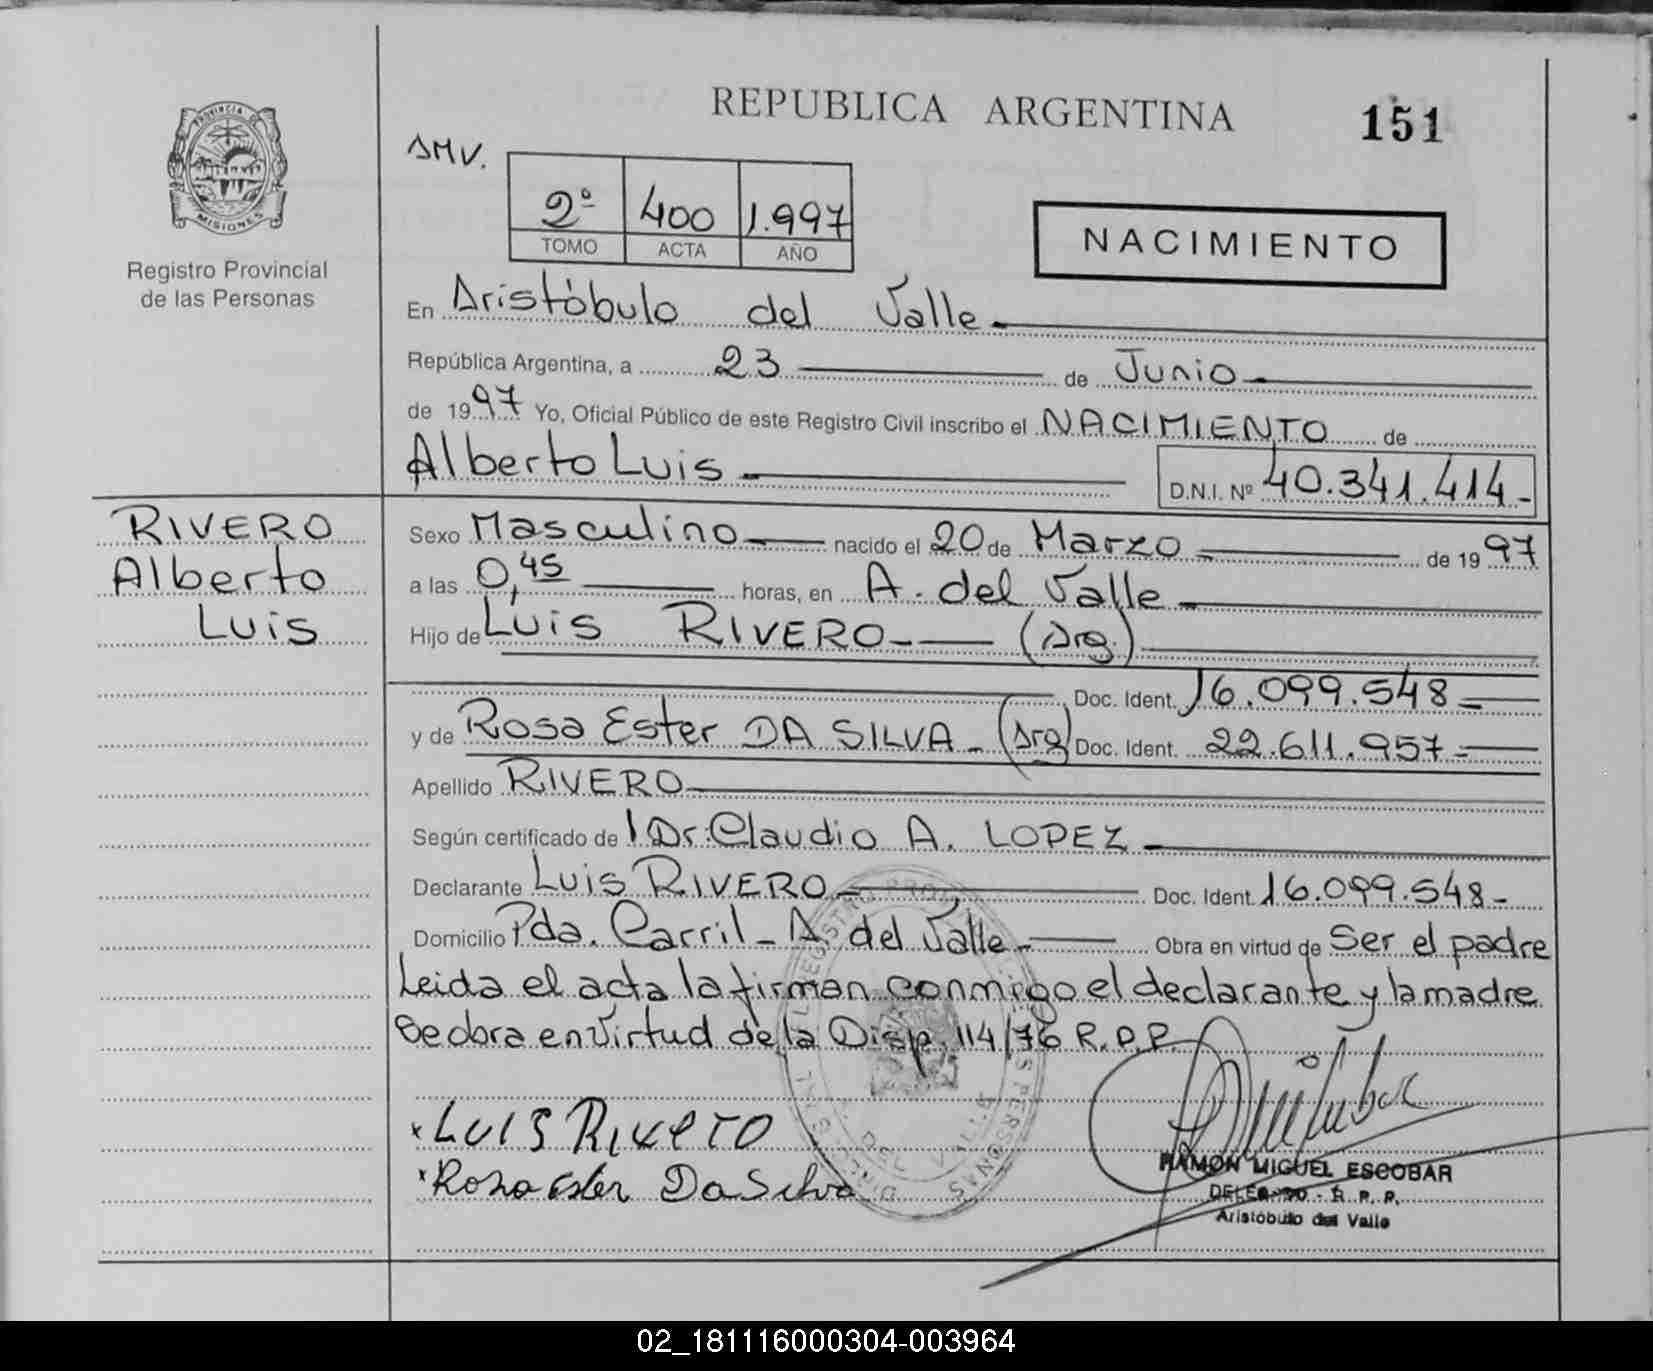 PROVINCIA DE
MISIONES
Registro Provincial
de las Personas
REPUBLICA ARGENTINA
151
AMV.
2º 400 1.997
TOMO ACTA AÑO
NACIMIENTO
En Aristóbulo del Valle
República Argentina, a 23 de Junio
de 1997 Yo, Oficial Público de este Registro Civil inscribo el NACIMIENTO de
Alberto Luis
D.N.I. Nº 40.341.414
RIVERO
Alberto
Luis
Sexo Masculino nacido el 20 de Marzo de 1997
a las 0,45 horas, en A. del Valle
Hijo de Luis RIVERO (Arg.)
Doc. Ident. 16.099.548
y de Rosa Ester DA SILVA (Arg) Doc. Ident. 22.611.957
Apellido RIVERO
Según certificado de l Dr. Claudio A. LOPEZ
Declarante Luis RIVERO Doc. Ident. 16.099.548
Domicilio Pda. Carril - A. del Valle Obra en virtud de Ser el padre
Leida el acta la firman conmigo el declarante y la madre
Se obra en virtud de la Disp. 114/76 R.P.P.
x LUIS RIVERO
x Rosa Ester Da Silva
RAMON MIGUEL ESCOBAR
DELEGADO - R. P. P.
Aristóbulo del Valle
02_181116000304-003964